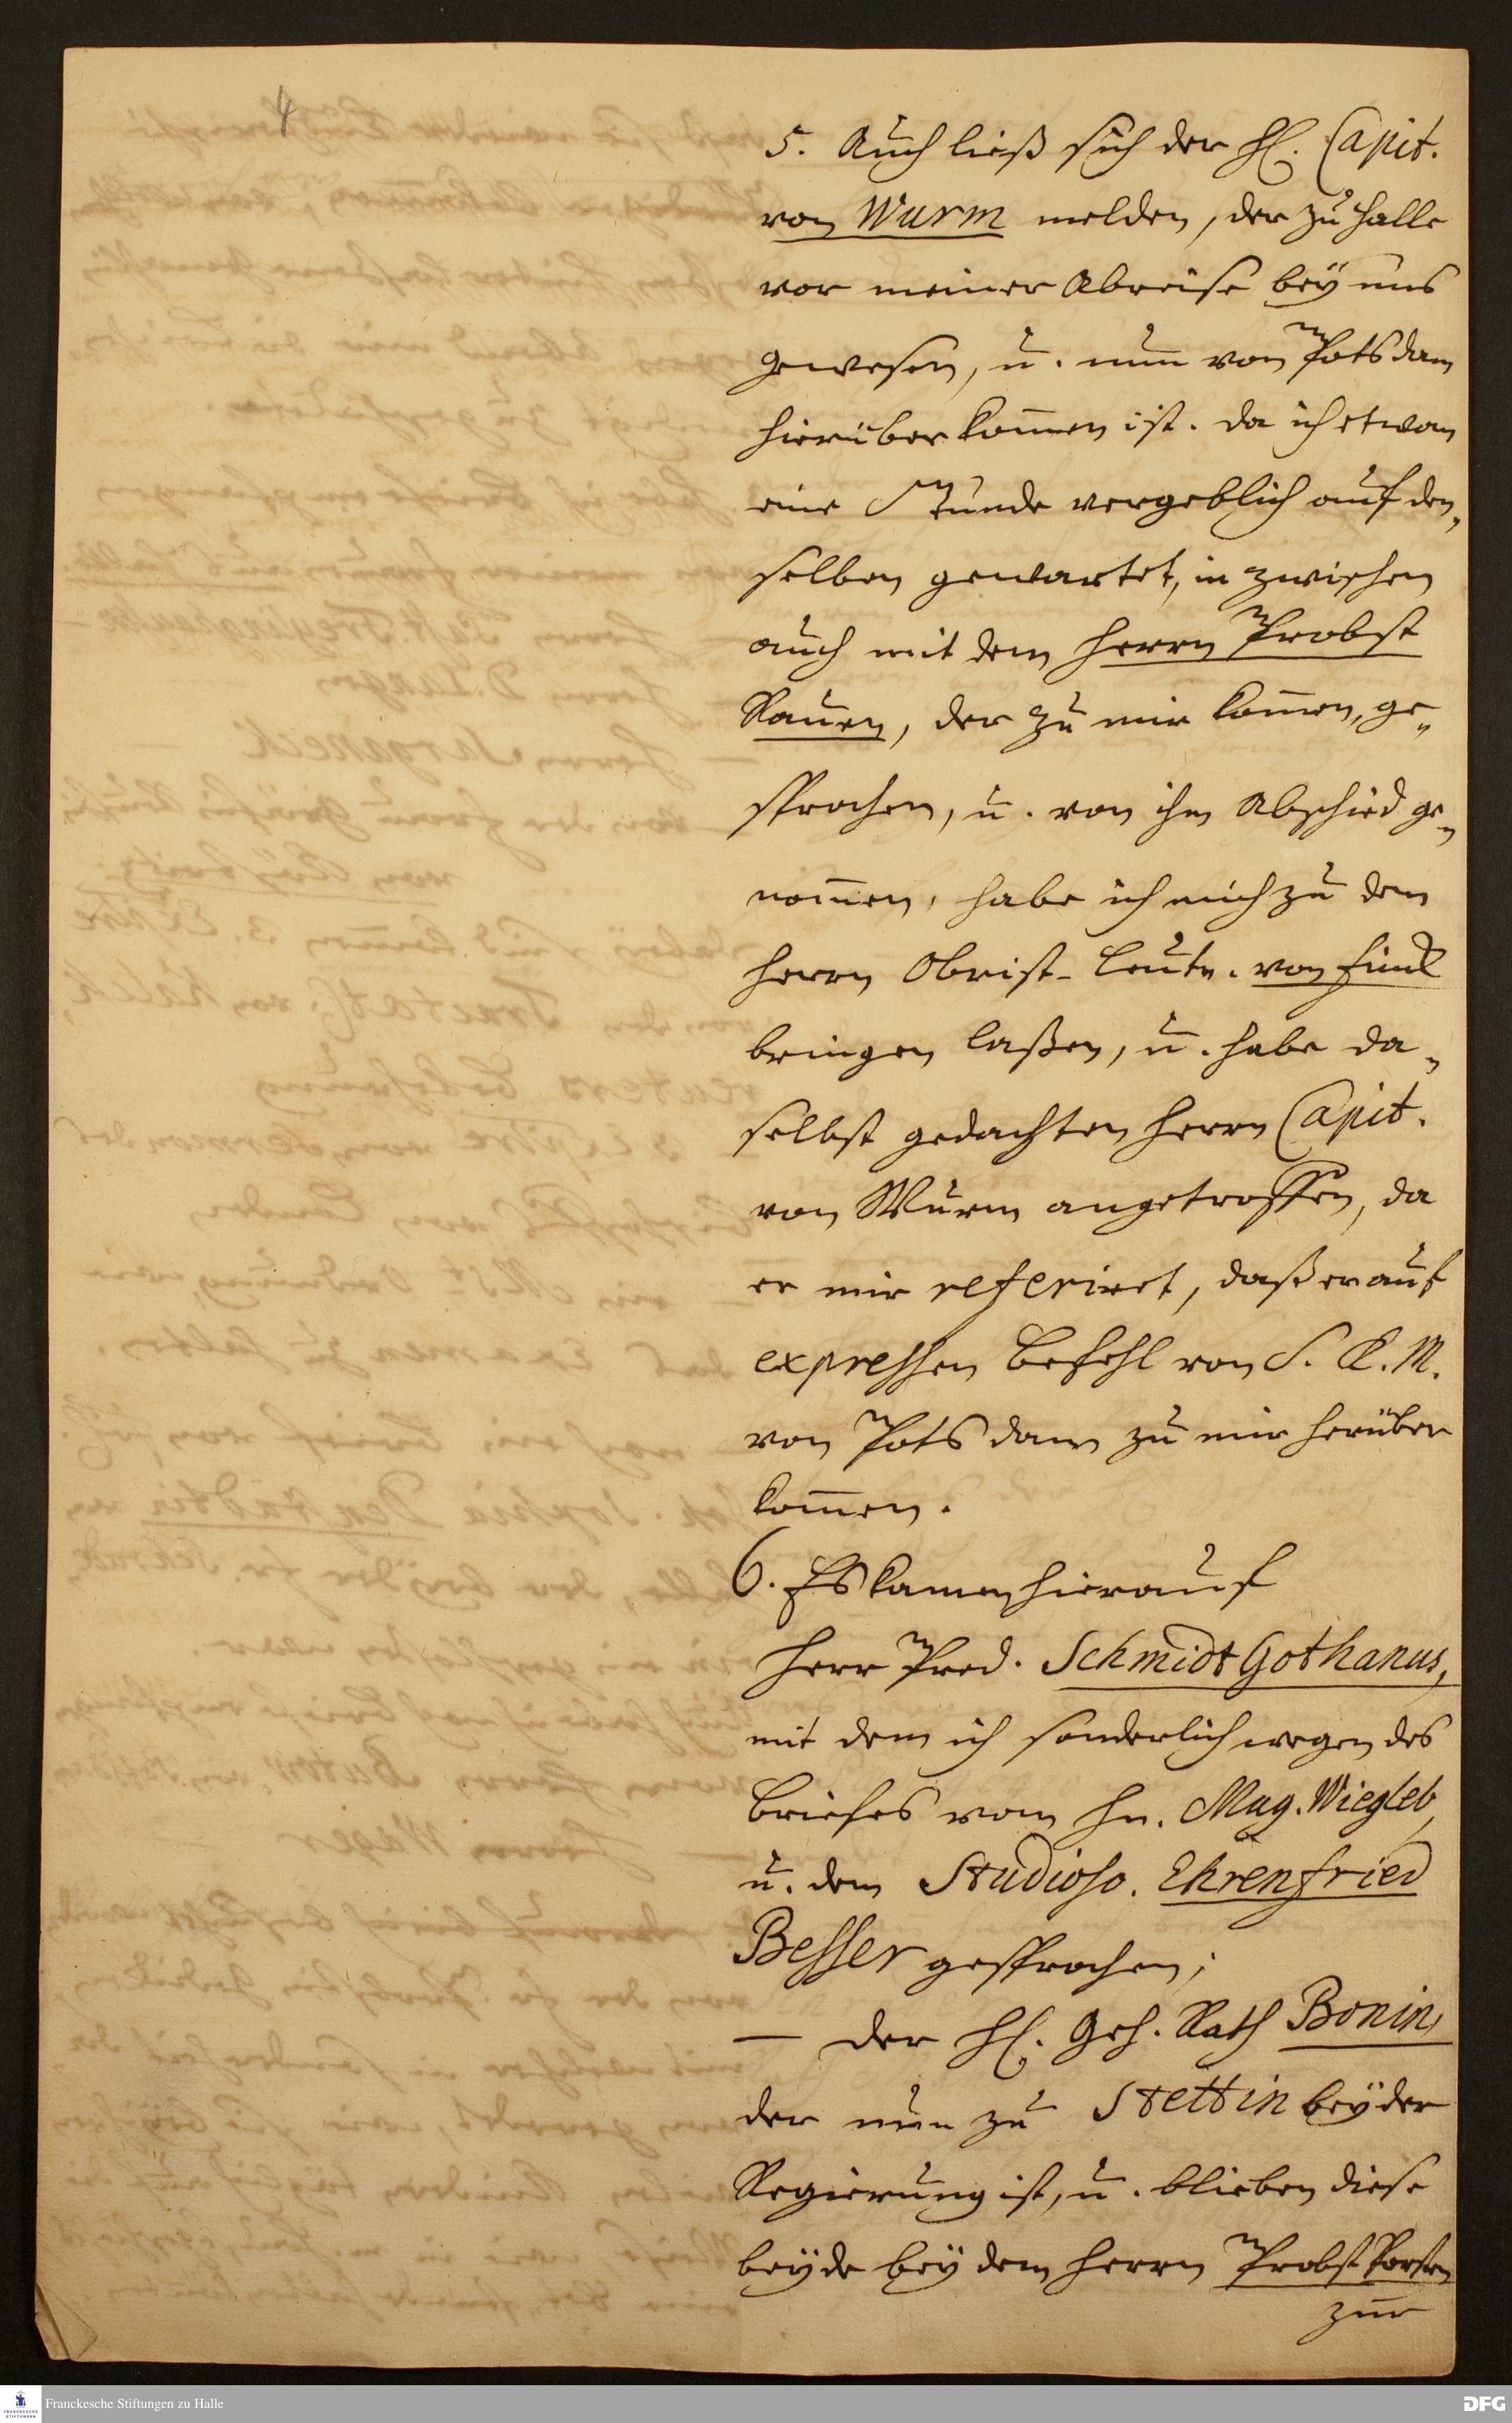 4
5. Auch ließ sich der H. Capit.
von Wurm melden, der zu Halle
vor meiner Abreise bey uns
gewesen, u. nun von Potsdam
hierüber kommen ist. Da ich etwan
eine Stunde vergeblich auf den„
selben gewartet, in zwischen
auch mit dem Herrn Probst
Rauen, der zu mir kommen, ge„
sprochen, u. von ihm Abschied ge„
nommen, habe ich mich zu dem
Herrn Obrist-Leutn. von Finck
bringen laßen, u. habe da„
selbst gedachten Herrn Capit.
von Wurm angetroffen, da
er mir referiret, daß er auf
expressen Befehl von S. K. M.
von Potsdam zu mir herüber
kommen.
6. Es kamen hierauf
Herr Pred. Schmidt Gothanus,
mit dem ich sonderlich wegen des
Briefes vom Hn. Mag. Wiegleb,
u. dem Studioso. Ehrenfried
Besser gesprochen;
— Der H. Geh. Rath Bonin,
der nun zu Stettin bey der
Regierung ist, u. blieben diese
beyde bey dem Herrn Probst Porsten
zur
Franckesche Stiftungen zu Halle
DFG